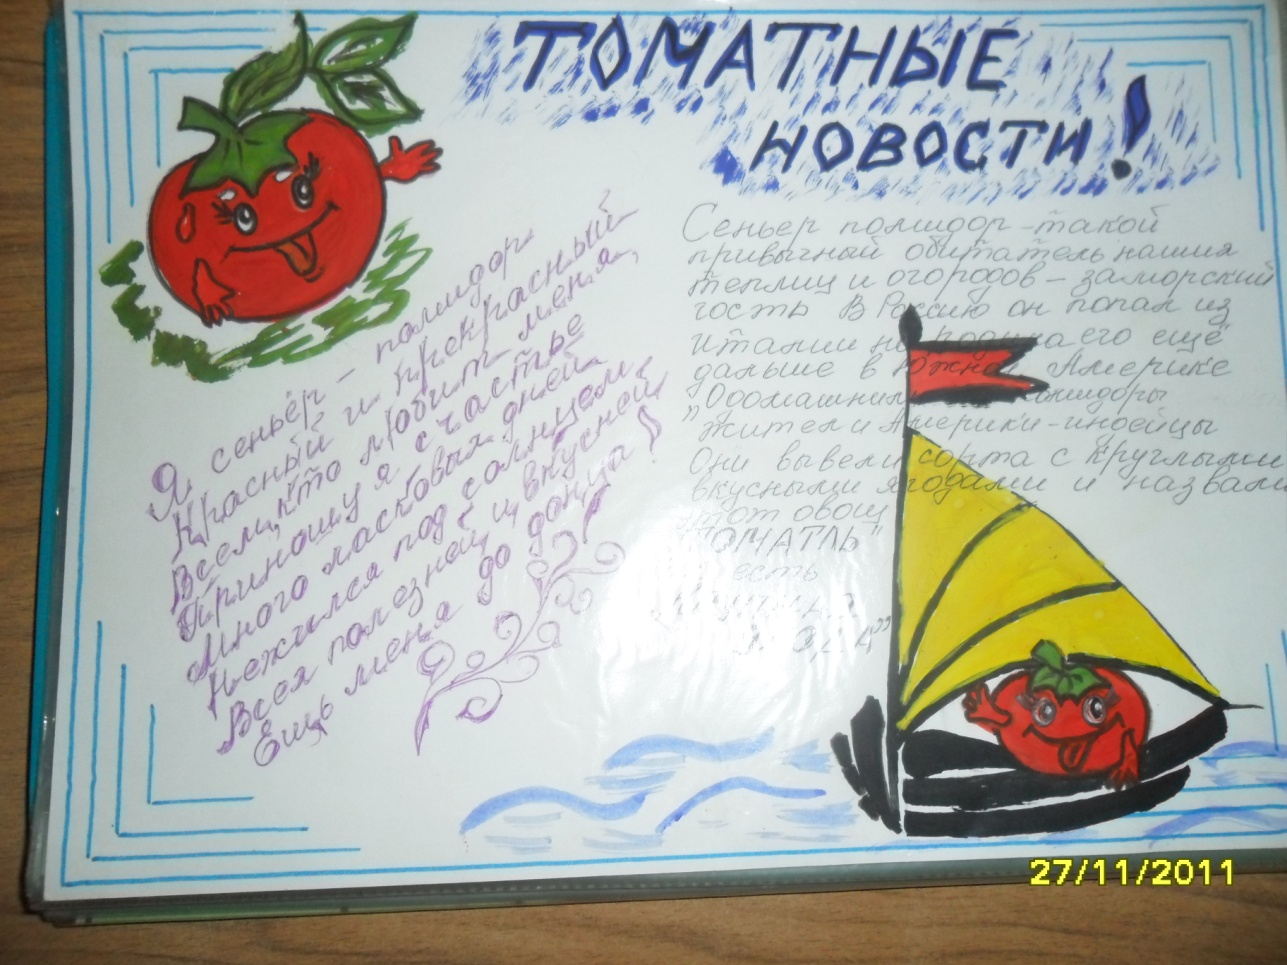 ТОМАТНЫЕ
НОВОСТИ!
Я сеньёр - помидор
Красный и прекрасный
Всем, кто любит меня,
Приношу я счастье
Много ласковых дней
Нежился под солнцем
Всея полезней и вкусней
Ешь меня до донца!
Сеньер помидор - такой
привычный обитатель наших
теплиц и огородов - заморский
гость В Россию он попал из
Италии но родина его ещё
дальше в Южной Америке
"Одомашнили помидоры
"жители Америки - индейцы
Они вывели сорта с круглыми
вкусными ягодами и назвали
этот овощ
"ТОМАТЛЬ"
есть
27/11/2011